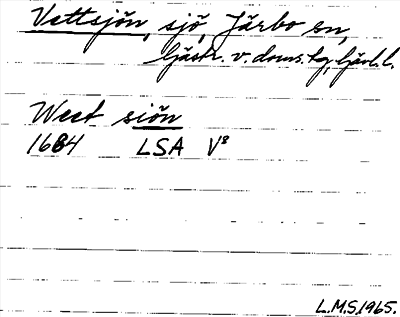 Vettsjön, sjö, Järbo sn,
Gästr. v. doms. tg, Gävl. l.
West siön
1684 LSA V8
L.M.S. 1965.